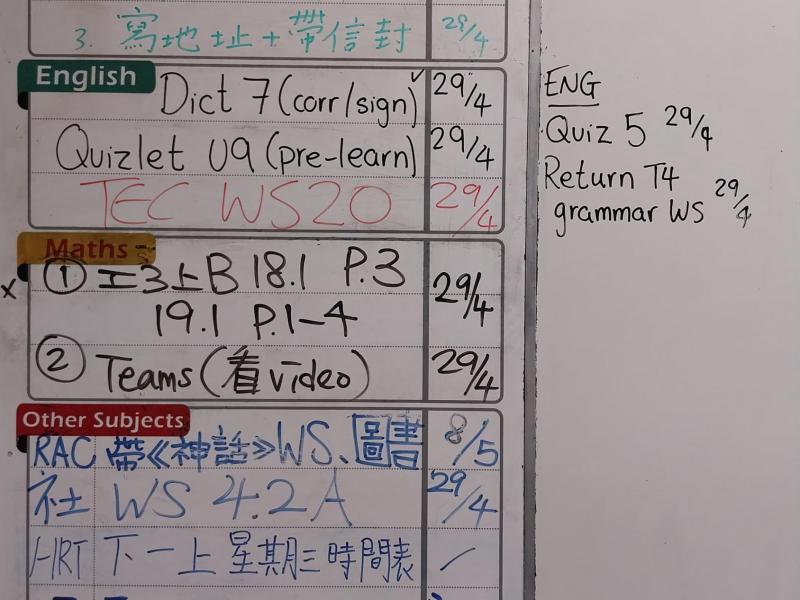 3. 寫地址+帶信封 29/4
English
Dict 7 (corr/sign) ✓ 29/4
Quizlet U9 (pre-learn) 29/4
TEC WS20 29/4
Maths
x ① 工3上B 18.1 P.3 29/4
19.1 P.1-4
② Teams (看video) 29/4
Other Subjects
RAC 帶《神話》WS、圖書 8/5
社 WS 4.2A 29/4
HRT 下一上星期三時間表 /
ENG
Quiz 5 29/4
Return T4 29/4
grammar WS